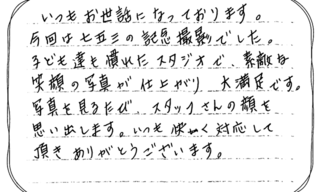 いつもお世話になっております。
今回は七五三の記念撮影でした。
子ども達も慣れたスタジオで、素敵な
笑顔の写真が仕上がり、大満足です。
写真を見るたび、スタッフさんの顔を
思い出します。いつも快く対応して
頂きありがとうございます。